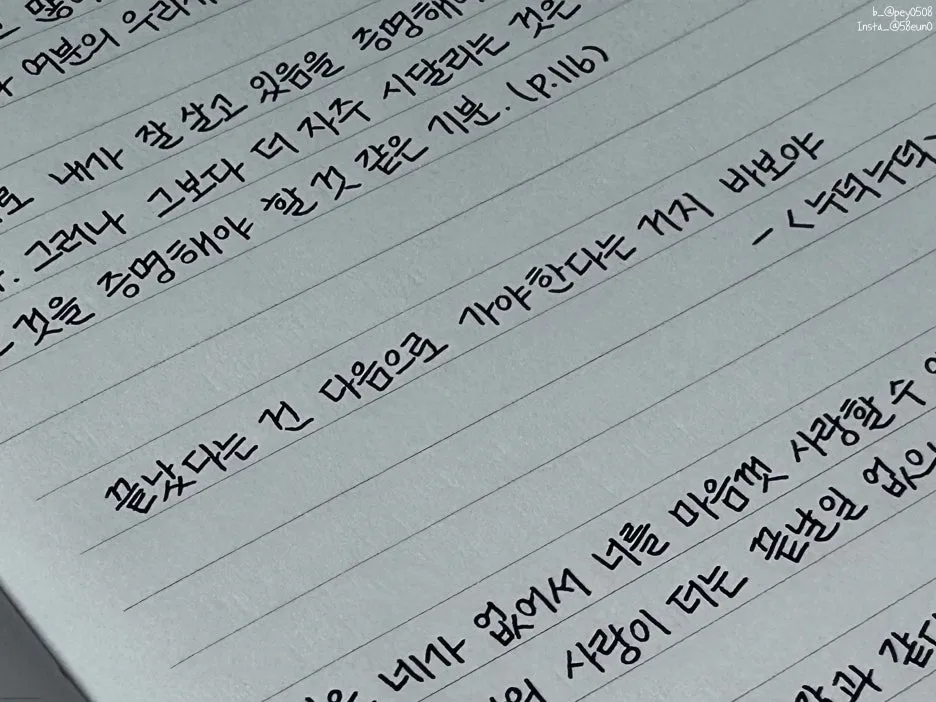 b_@pey0508
Insta_@58eun0
여분의 우리
내가 잘 살고 있음을 증명해야
그러나 그보다 더 자주 시달리는 것은
것을 증명해야 할 것 같은 기분. (P.116)
끝났다는 건 다음으로 가야한다는 거지 바보야
- <누덕누덕>
네가 없어서 너를 마음껏 사랑할 수
사랑이 더는 끝날일 없으
같다